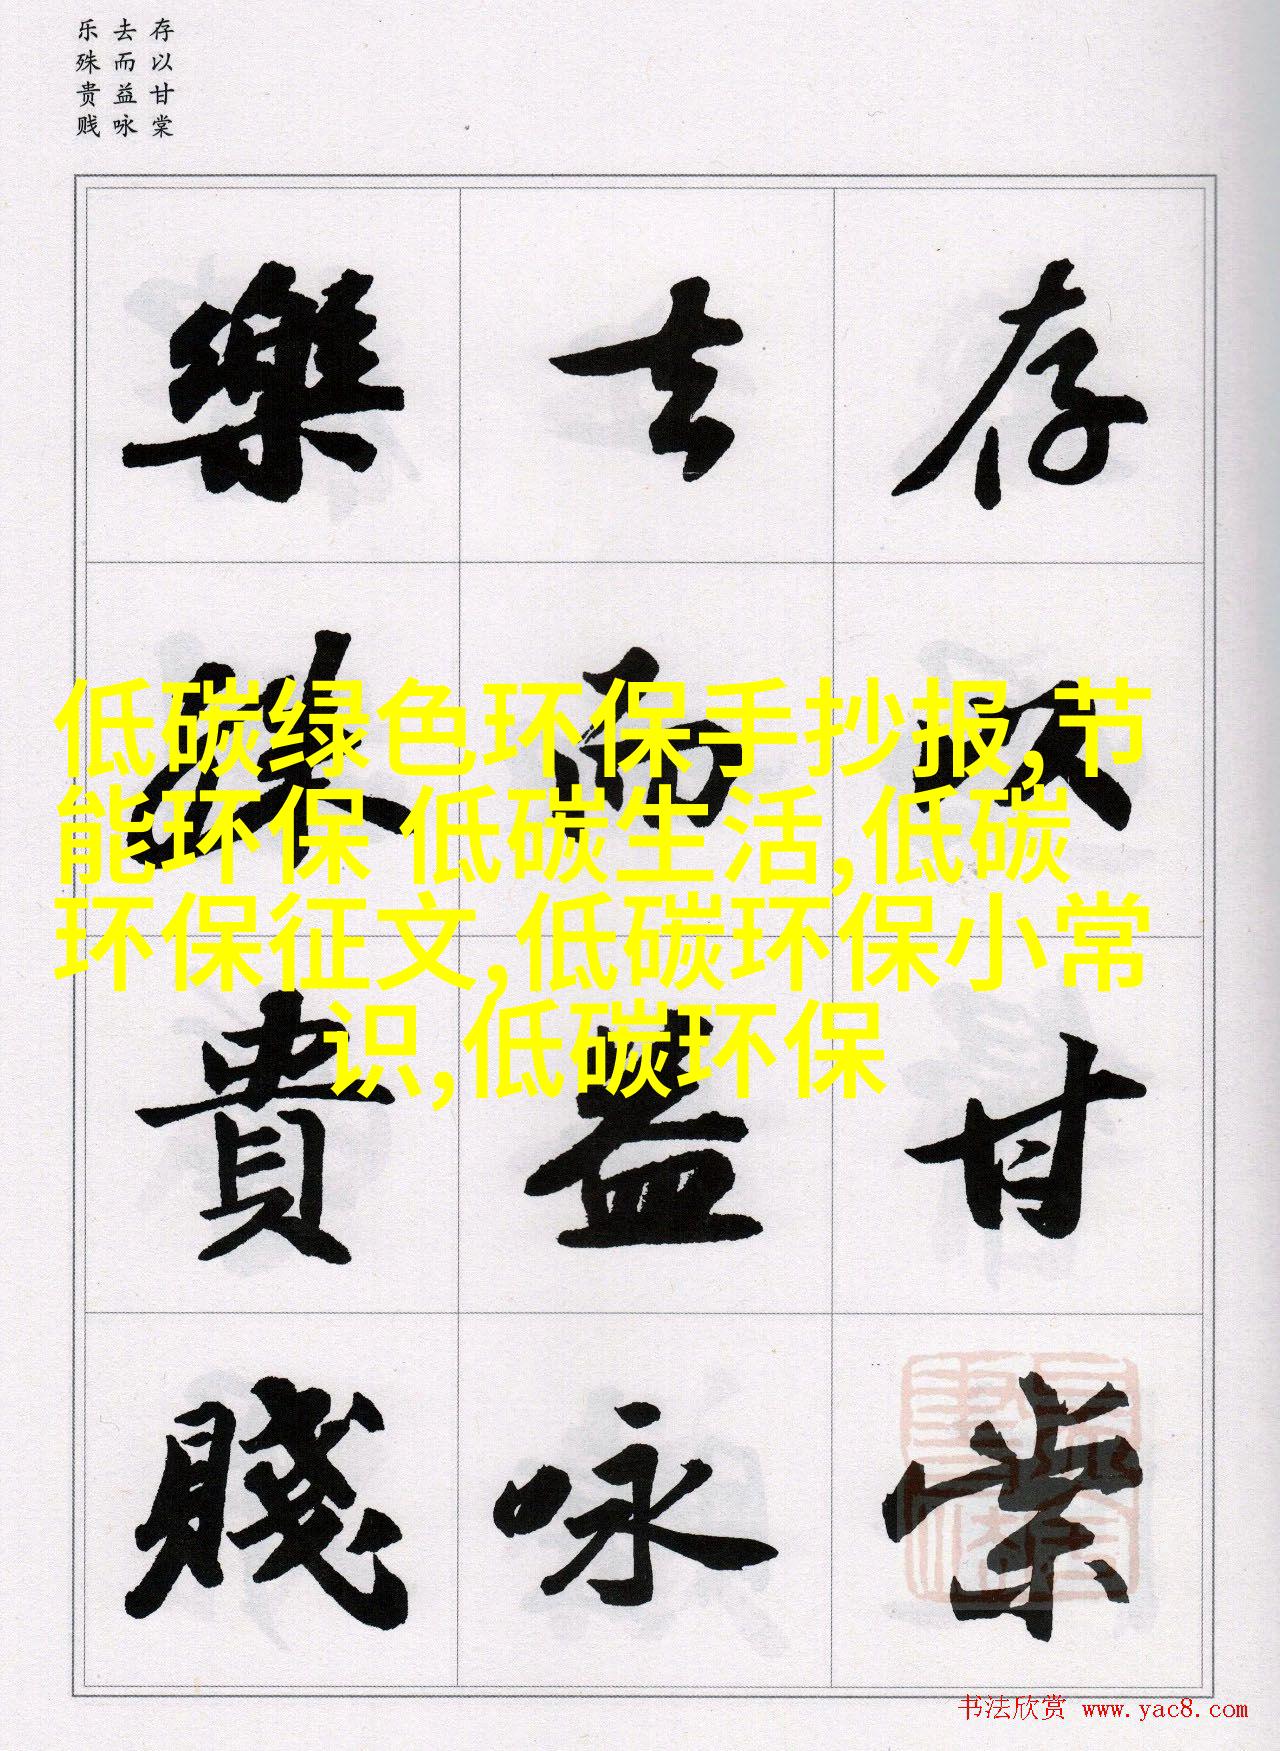 存以甘棠
去而益咏
乐殊贵贱
存以甘棠
去而益詠
樂殊貴賤
低碳绿色环保手抄报,节
能环保 低碳生活,低碳
环保征文,低碳环保小常
识,低碳环保
书法欣赏 www.yac8.com